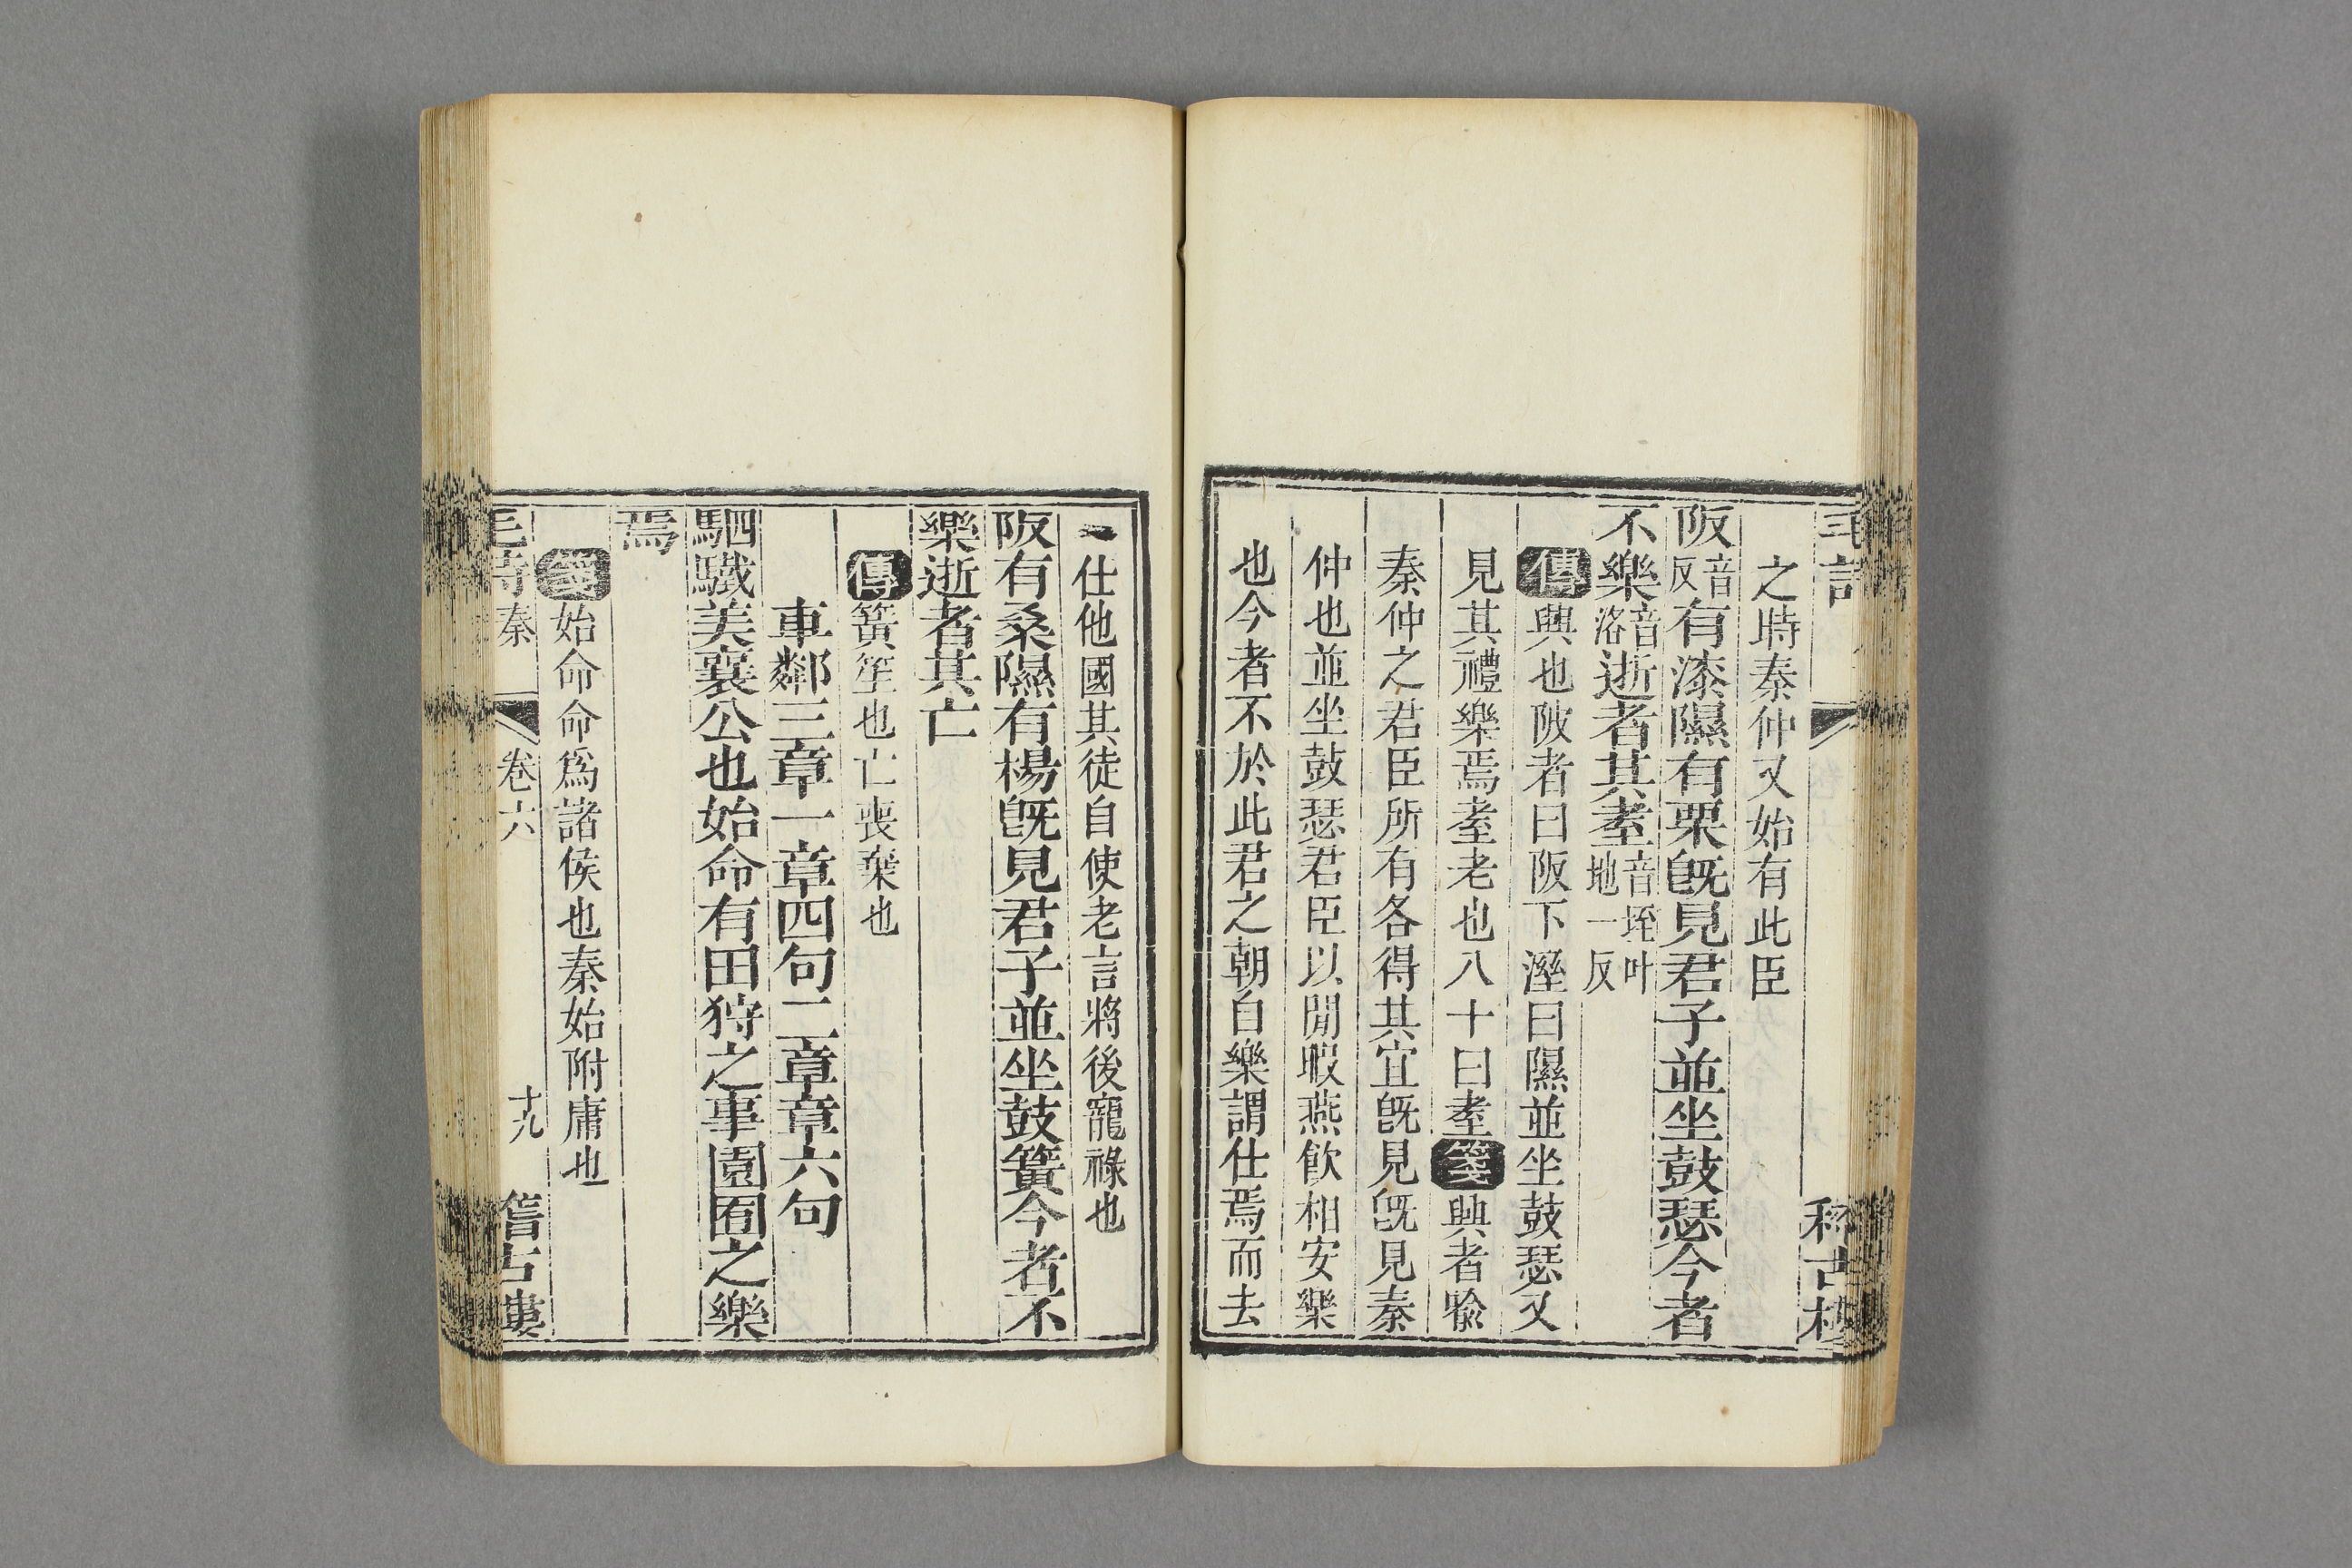 之時秦仲又始有此臣
阪音反有漆隰有栗旣見君子並坐鼓瑟今者
不樂音洛逝者其耋音垤叶地一反
傳興也陂者曰阪下溼曰隰並坐鼓瑟又
見其禮樂焉耋老也八十曰耋箋興者喩
秦仲之君臣所有各得其宜旣見旣見秦
仲也並坐鼓瑟君臣以閒暇燕飮相安樂
也今者不於此君之朝自樂謂仕焉而去
仕他國其徒自使老言將後寵祿也
阪有桑隰有楊旣見君子並坐鼓簧今者不
樂逝者其亡
傳簧笙也亡喪棄也
車鄰三章一章四句二章章六句
駟驖美襄公也始命有田狩之事園囿之樂
焉
箋始命命爲諸侯也秦始附庸也
毛詩秦 卷六 十九 稽古樓